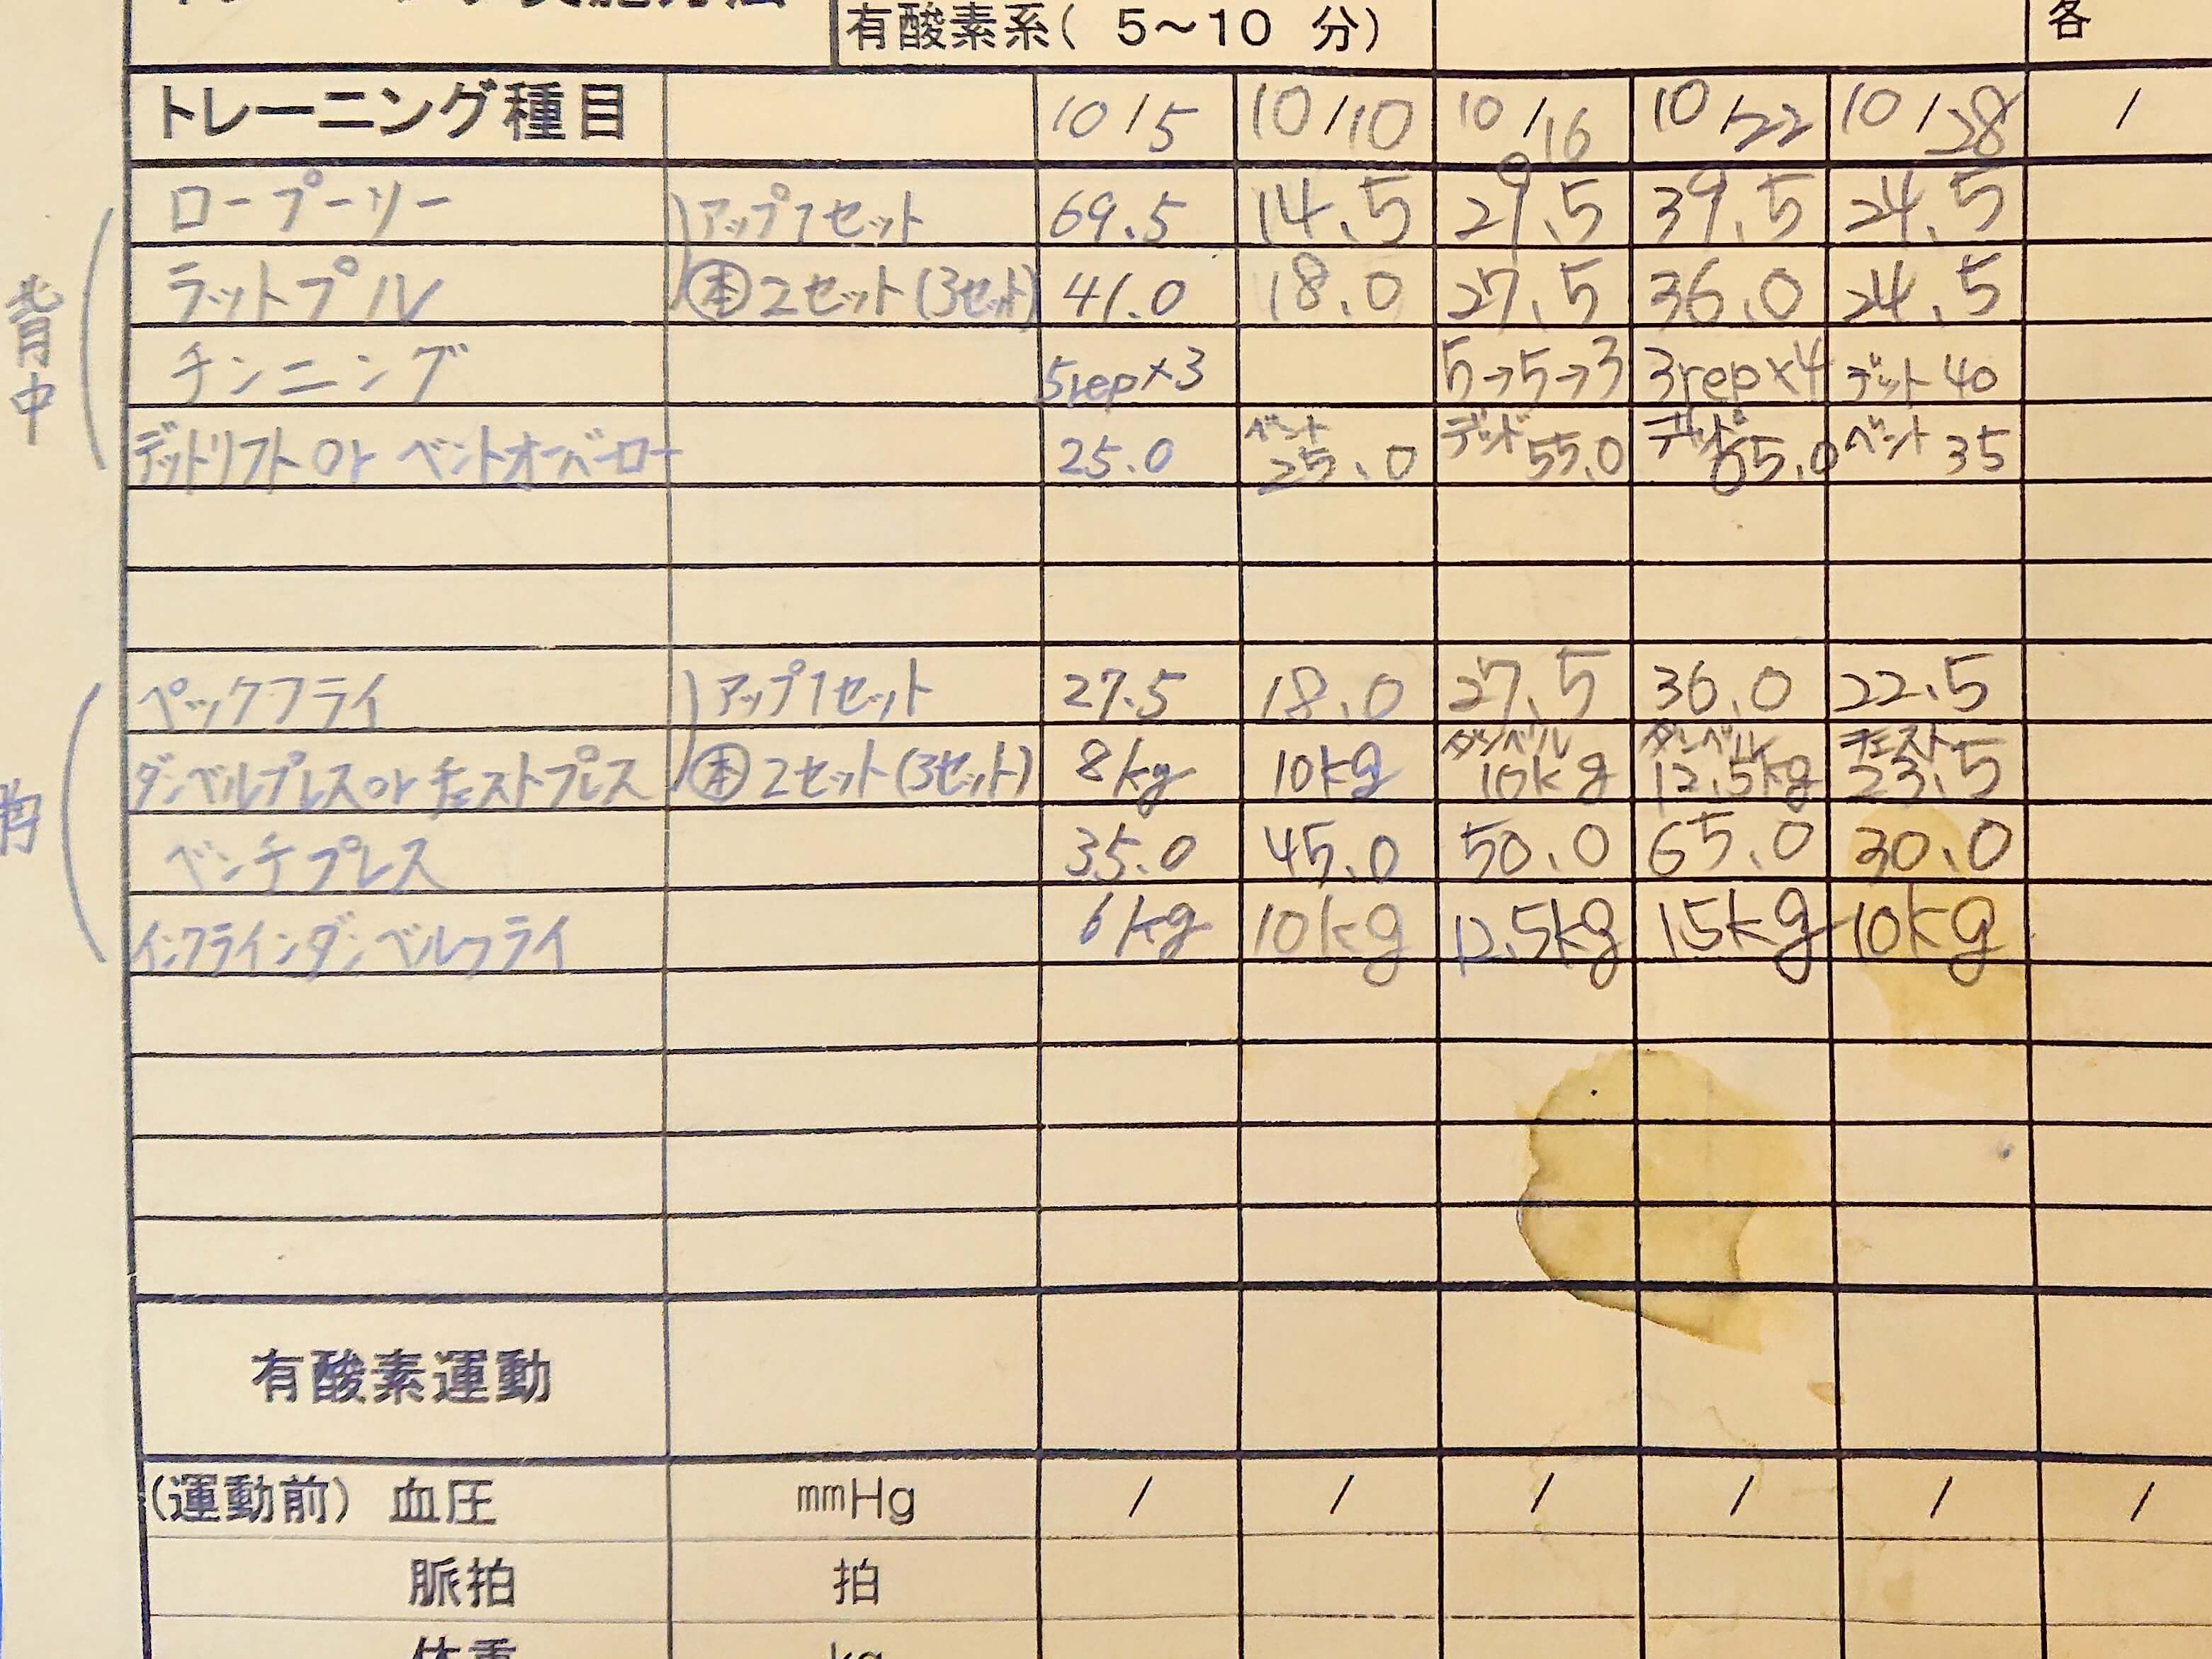 有酸素系( 5～10 分) 各
トレーニング種目 10/5 10/10 10/16 10/22 10/28 /
背中
ロープーリー アップ1セット 69.5 14.5 29.5 39.5 24.5
ラットプル 本2セット(3セット) 41.0 18.0 27.5 36.0 24.5
チンニング 5rep×3 5→5→3 3rep×4 デット40
デットリフトor ベントオーバーロー 25.0 ベント25.0 デッド55.0 デッド65.0 ベント35
胸
ペックフライ アップ1セット 27.5 18.0 27.5 36.0 22.5
ダンベルプレスorチェストプレス 本2セット(3セット) 8kg 10kg ダンベル10kg ダンベル12.5kg チェスト23.5
ベンチプレス 35.0 45.0 50.0 65.0 30.0
インクラインダンベルフライ 6kg 10kg 12.5kg 15kg 10kg
有酸素運動
(運動前) 血圧 mmHg / / / / / /
脈拍 拍
体重 kg